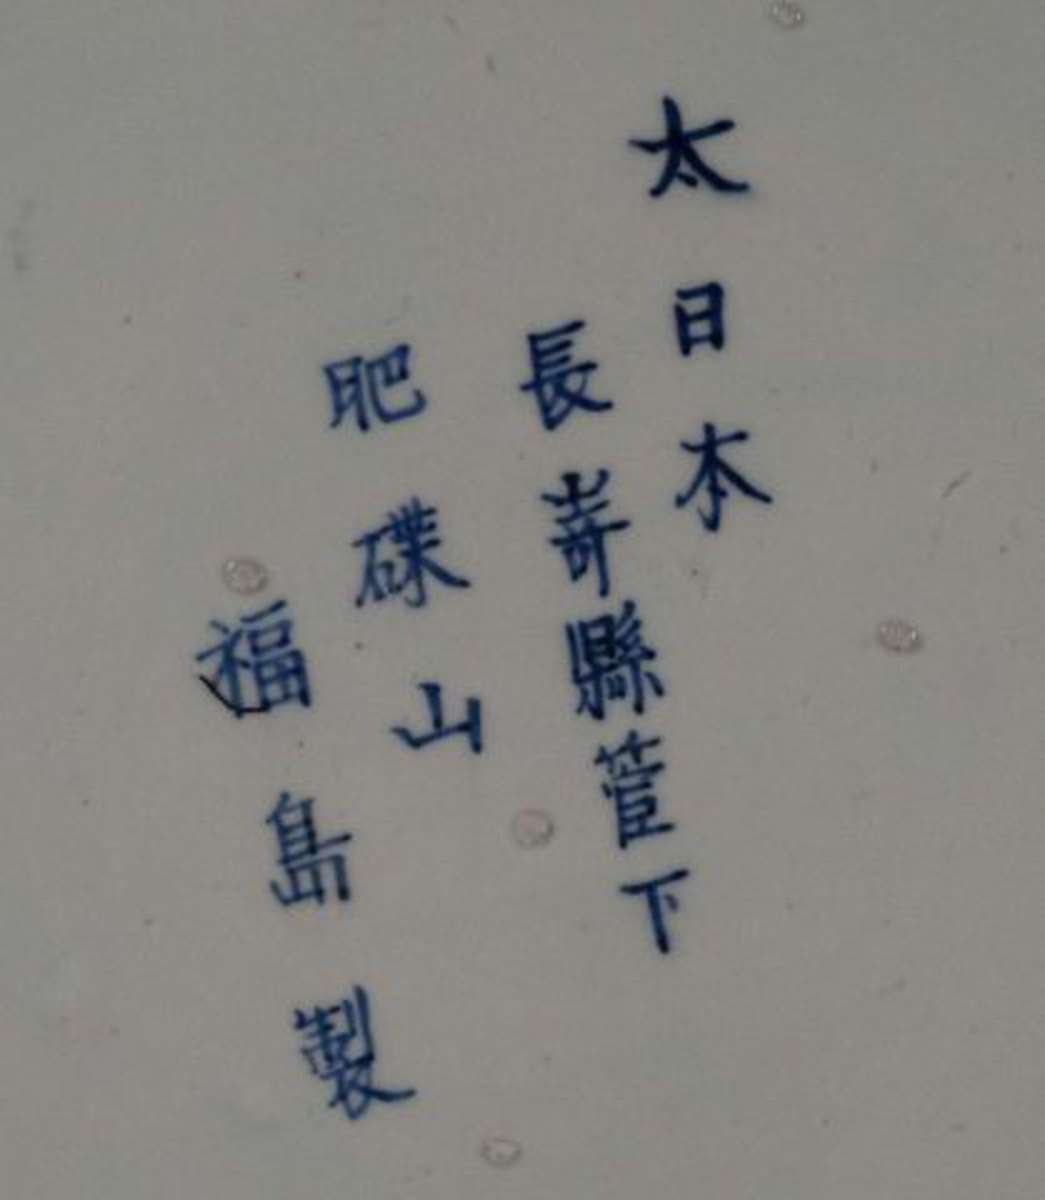 太日本
長嵜縣菅下
肥碟山
福島製